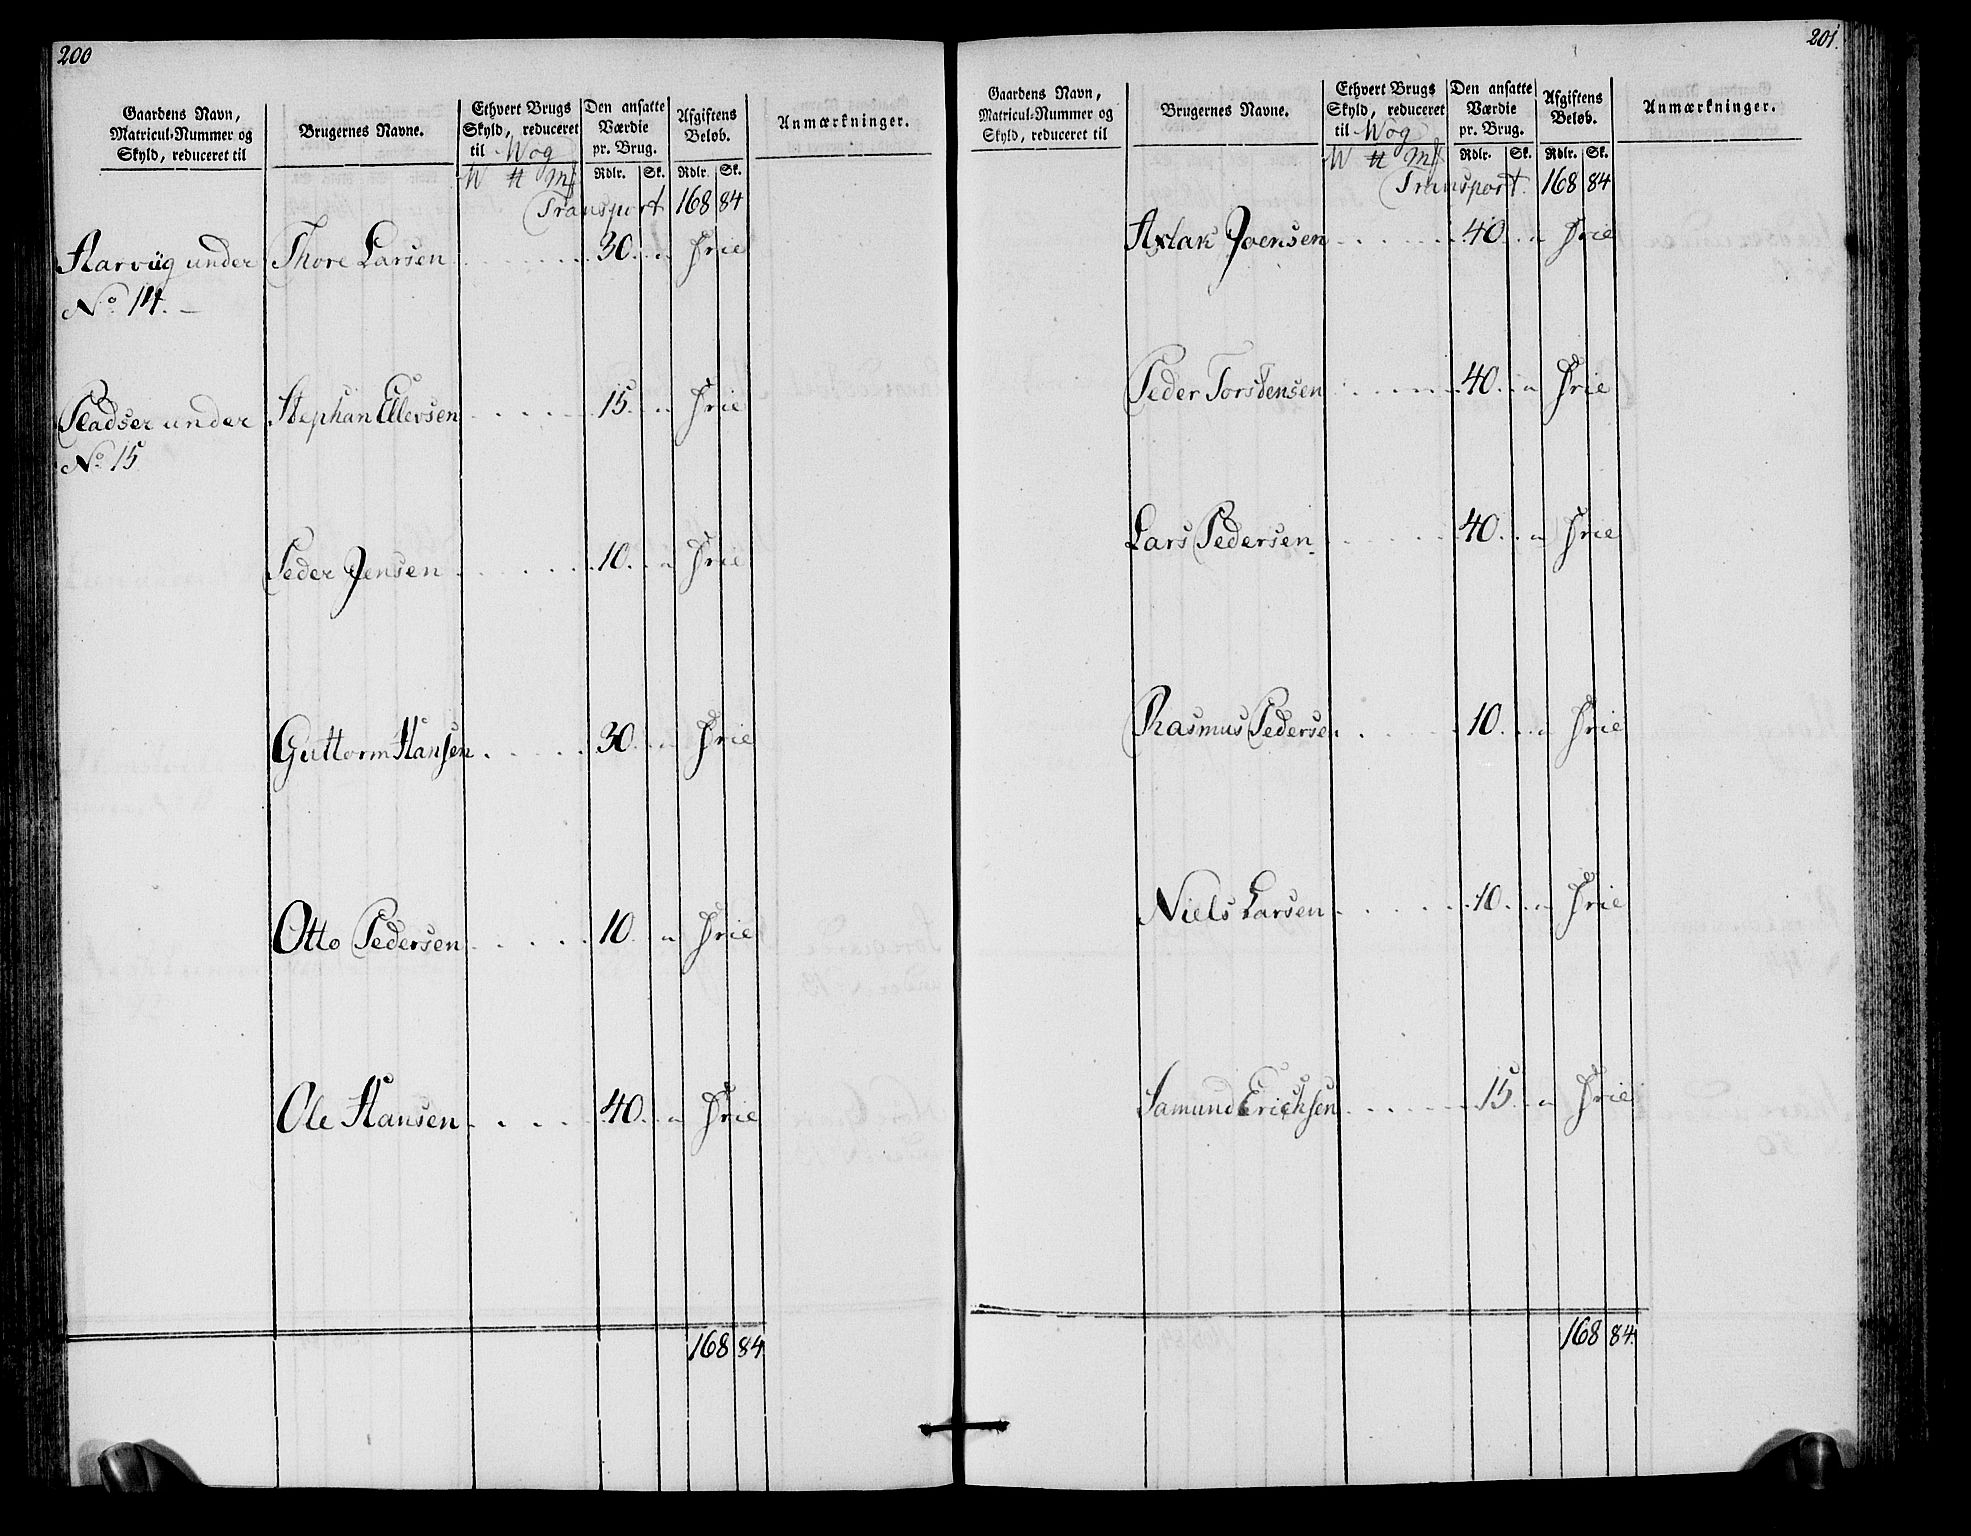 200
Gaardens Navn, Matricul-Nummer og Skyld, reduceret til | Brugernes Navne. | Ethvert Brugs Skyld, reduceret til Wog | Den ansatte Værdie pr. Brug. | Afgiftens Beløb. | Anmærkninger.
W ℔ Mk | Rdlr. | Sk. | Rdlr. | Sk.
Transport 168 84
Aarviig under | Thore Larsen . . . . . 30 . . „ Frie
No 114. –
Pladser under | Stephan Ellevsen . . . . . 15 . . „ Frie
No 15
Peder Jensen . . . . . 10 . . „ Frie
Guttorm Hansen . . . . . 30 . . „ Frie
Otto Pedersen . . . . . 10 . . „ Frie
Ole Hansen . . . . . 40 . . „ Frie
168 84
201.
Gaardens Navn, Matricul-Nummer og Skyld, reduceret til | Brugernes Navne. | Ethvert Brugs Skyld, reduceret til Wog | Den ansatte Værdie pr. Brug. | Afgiftens Beløb. | Anmærkninger.
W ℔ Mk | Rdlr. | Sk. | Rdlr. | Sk.
Transport 168 84
Axlak Joensen . . . . . 40 . . „ Frie
Peder Torstensen . . . . . 40 . . „ Frie
Lars Pedersen . . . . . 40 . . „ Frie
Rasmus Pedersen . . . . . 10 . . „ Frie
Niels Larsen . . . . . 10 . . „ Frie
Samund Erichsen . . . . . 15 . . „ Frie
168 84